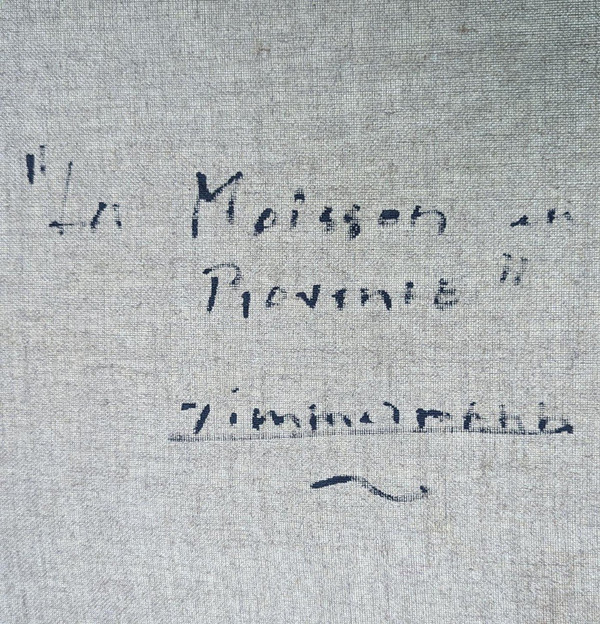 "La Moisson en
Provence"
Zimmermann